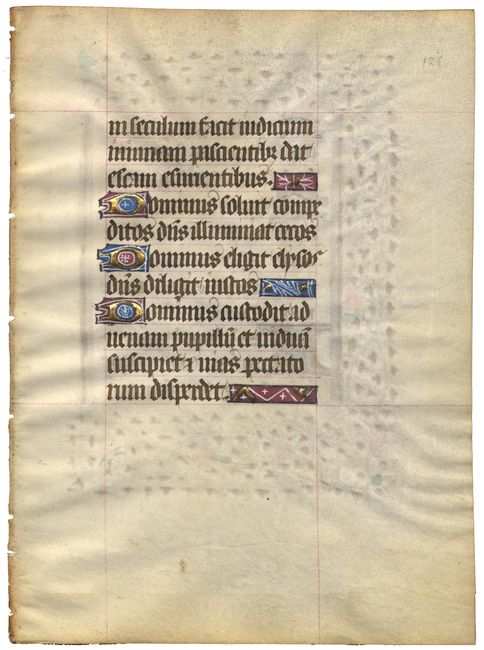 in seculum facit iudicium
iniuriam pascientibꝰ dat
escam esurientibus.
Dominus soluit compe
ditos dn̄s illuminat cecos
Dominus eligit elysos
dn̄s diligit iustos
Dominus custodit ad
uenam pupillū et uiduā
suscipiet ⁊ uias peccato
rum disperdet.